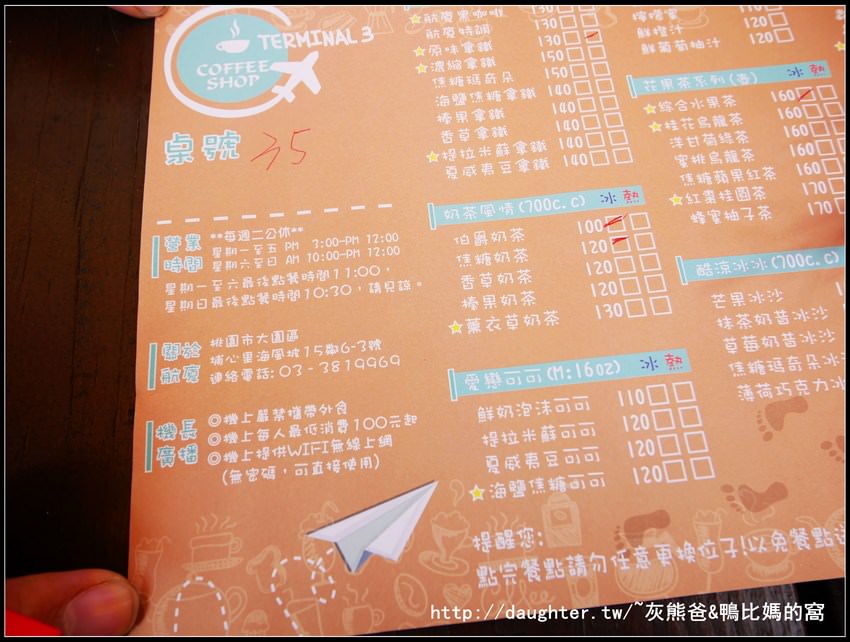 TERMINAL 3
COFFEE
SHOP
桌號 35
營業
時間
**每週二公休**
星期一至五 PM 3:00-PM 12:00
星期六至日 AM 10:00-PM 12:00
星期一至六最後點餐時間11:00，
星期日最後點餐時間10:30，請見諒。
關於
航廈
桃園市大園區
埔心里海風坡15鄰6-3號
連絡電話: 03-3819969
機長
廣播
◎機上嚴禁攜帶外食
◎機上每人最低消費100元起
◎機上提供WIFI無線上網
(無密碼，可直接使用)
航廈黑咖啡 130
航廈特調 130
原味拿鐵 130
濃縮拿鐵 150
焦糖瑪奇朵 150
海鹽焦糖拿鐵 140
榛果拿鐵 140
香草拿鐵 140
提拉米蘇拿鐵 140
夏威夷豆拿鐵 140
奶茶風情(700c.c) 冰 熱
伯爵奶茶 100
焦糖奶茶 120
香草奶茶 120
榛果奶茶 120
薰衣草奶茶 130
愛戀可可(M:16oz) 冰 熱
鮮奶泡沫可可 110
提拉米蘇可可 120
夏威夷豆可可 120
海鹽焦糖可可 120
鮮橙汁 120
鮮葡萄柚汁 120
花果茶系列(壺) 冰 熱
綜合水果茶 160
桂花烏龍茶 160
洋甘菊綠茶 160
蜜桃烏龍茶 160
焦糖蘋果紅茶 160
紅棗桂圓茶 170
蜂蜜柚子茶 170
酷涼冰冰(700c.c)
芒果冰沙
抹茶奶昔冰沙
草莓奶昔冰沙
焦糖瑪奇朵冰
薄荷巧克力冰
提醒您:
點完餐點請勿任意更換位子!以免餐點送
http://daughter.tw/~灰熊爸&鴨比媽的窩